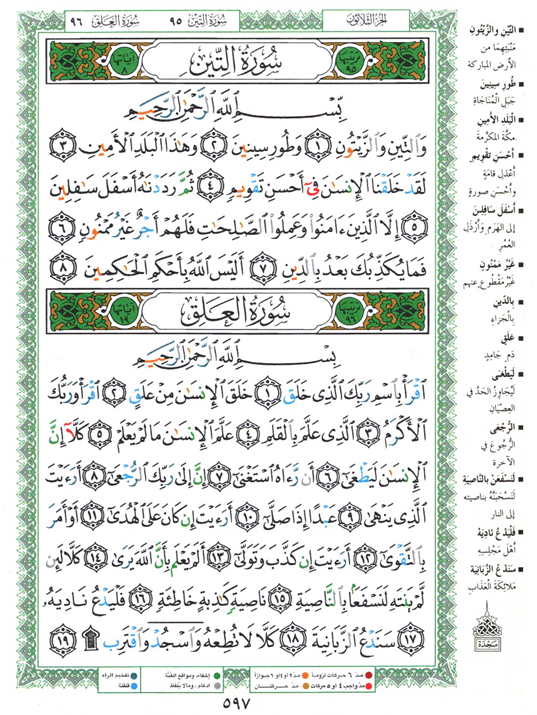 الجزء الثلاثون
سورة التين ٩٥
سورة العلق ٩٦
ترتيبها ٩٥
سُورَةُ التِّينِ
آياتها ٨
بِسْمِ اللَّهِ الرَّحْمَٰنِ الرَّحِيمِ
وَالتِّينِ وَالزَّيْتُونِ ١ وَطُورِ سِينِينَ ٢ وَهَٰذَا الْبَلَدِ الْأَمِينِ ٣
لَقَدْ خَلَقْنَا الْإِنسَٰنَ فِىٓ أَحْسَنِ تَقْوِيمٍ ٤ ثُمَّ رَدَدْنَٰهُ أَسْفَلَ سَٰفِلِينَ
٥ إِلَّا الَّذِينَ ءَامَنُوا۟ وَعَمِلُوا۟ الصَّٰلِحَٰتِ فَلَهُمْ أَجْرٌ غَيْرُ مَمْنُونٍ ٦
فَمَا يُكَذِّبُكَ بَعْدُ بِالدِّينِ ٧ أَلَيْسَ اللَّهُ بِأَحْكَمِ الْحَٰكِمِينَ ٨
سُورَةُ العَلَقِ
بِسْمِ اللَّهِ الرَّحْمَٰنِ الرَّحِيمِ
اقْرَأْ بِاسْمِ رَبِّكَ الَّذِى خَلَقَ ١ خَلَقَ الْإِنسَٰنَ مِنْ عَلَقٍ ٢ اقْرَأْ وَرَبُّكَ
الْأَكْرَمُ ٣ الَّذِى عَلَّمَ بِالْقَلَمِ ٤ عَلَّمَ الْإِنسَٰنَ مَا لَمْ يَعْلَمْ ٥ كَلَّآ إِنَّ
الْإِنسَٰنَ لَيَطْغَىٰٓ ٦ أَن رَّءَاهُ اسْتَغْنَىٰٓ ٧ إِنَّ إِلَىٰ رَبِّكَ الرُّجْعَىٰٓ ٨ أَرَءَيْتَ
الَّذِى يَنْهَىٰ ٩ عَبْدًا إِذَا صَلَّىٰٓ ١٠ أَرَءَيْتَ إِن كَانَ عَلَى الْهُدَىٰٓ ١١ أَوْ أَمَرَ
بِالتَّقْوَىٰٓ ١٢ أَرَءَيْتَ إِن كَذَّبَ وَتَوَلَّىٰٓ ١٣ أَلَمْ يَعْلَم بِأَنَّ اللَّهَ يَرَىٰ ١٤ كَلَّا لَئِن
لَّمْ يَنتَهِ لَنَسْفَعًۢا بِالنَّاصِيَةِ ١٥ نَاصِيَةٍ كَٰذِبَةٍ خَاطِئَةٍ ١٦ فَلْيَدْعُ نَادِيَهُۥ
١٧ سَنَدْعُ الزَّبَانِيَةَ ١٨ كَلَّا لَا تُطِعْهُ وَاسْجُدْ وَاقْتَرِب ۩ ١٩
■ التين والزيتون
مَنْبَتِهِما من
الأرض المباركة
■ طور سينين
جبل المُناجاة
■ البلد الأمين
مكّة المكرّمة
■ أحسن تقويم
أعدل قامة
وأحسن صورة
■ أسفل سافلين
إلى الهرم وأرذل
العمر
■ غير ممنون
غير مقطوع عنهم
■ بالدين
بالجزاء
■ علق
دم جامد
■ ليطغى
ليجاوز الحد في
العصيان
■ الرجعى
الرجوع في
الآخرة
■ لنسفعن بالناصية
لنسحبنّه بناصيته
إلى النار
■ فليدع ناديه
أهل مجلسه
■ سندع الزبانية
ملائكة العذاب
سَجدة
مدّ ٦ حركات لزوماً
مدّ ٢ أو ٤ أو ٦ جوازاً
إخفاء، ومواقع الغُنّة
تفخيم الراء
مدّ واجب ٤ أو ٥ حركات
مدّ حركتان
إدغام، وما لا يُلفظ
قلقلة
٥٩٧